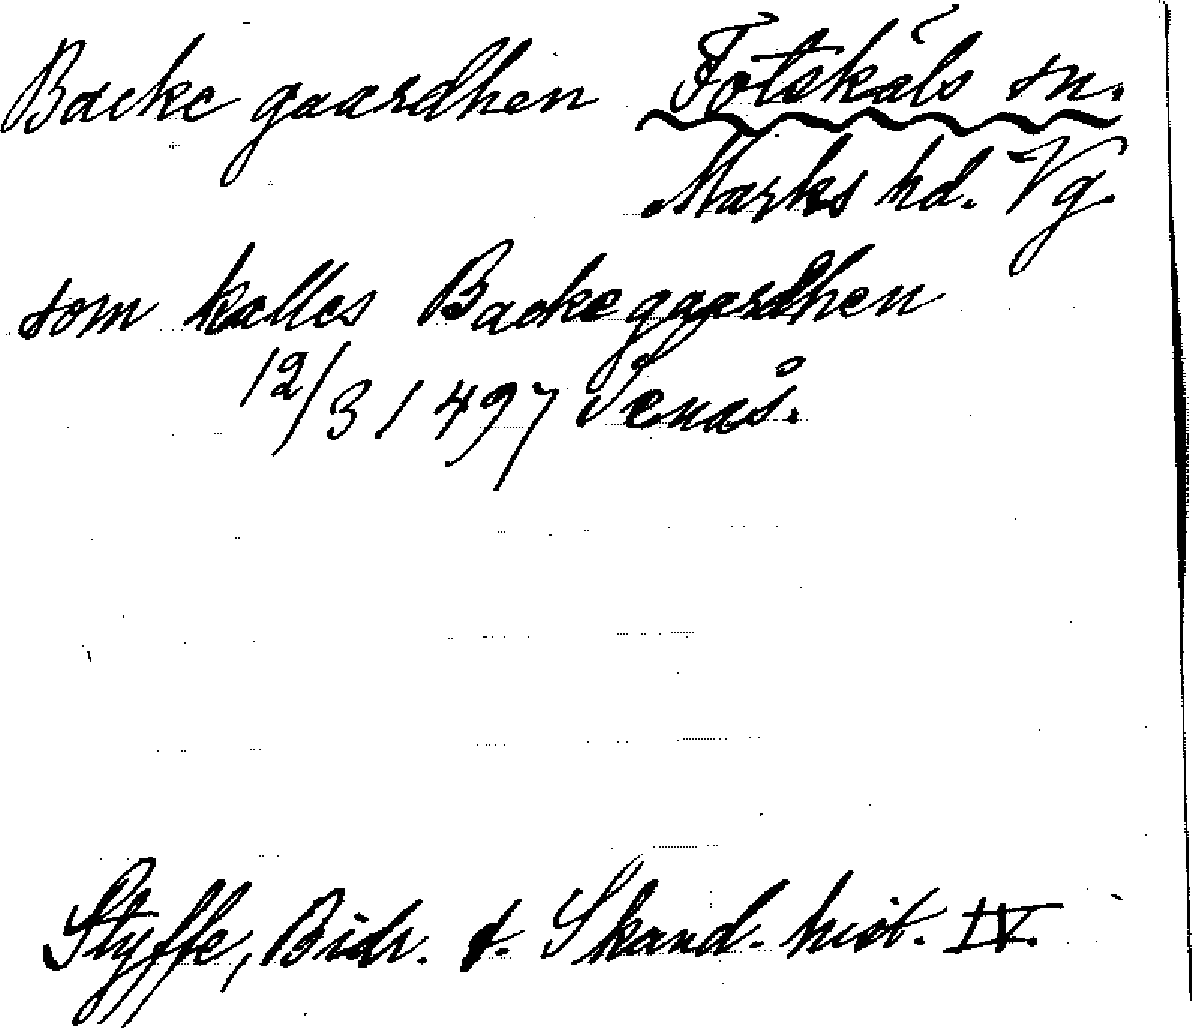 Backe gaardhen Fotskäls sn.
Marks hd. Vg.
som kalles Backegaardhen
12/3 1497 Tenås.
Styffe, Bidr. t. Skand. hist. IV.